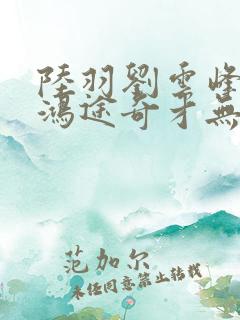 陸羽劉雲峰
鴻途奇才無
范加尔
未经同意禁止转载